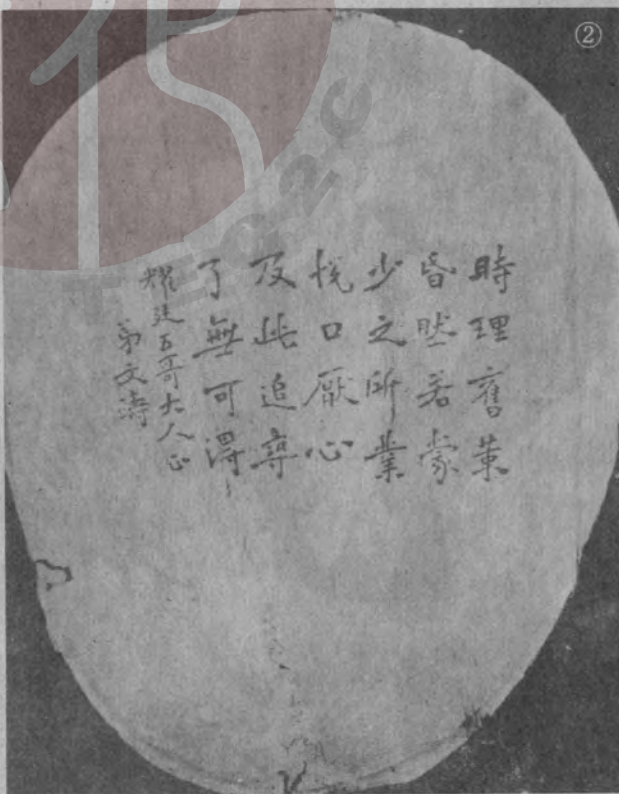 ②
時理舊業
昏然若蒙
少之所業
悅口厭心
及此追尋
了無可得
耀廷五哥大人正
弟文濤